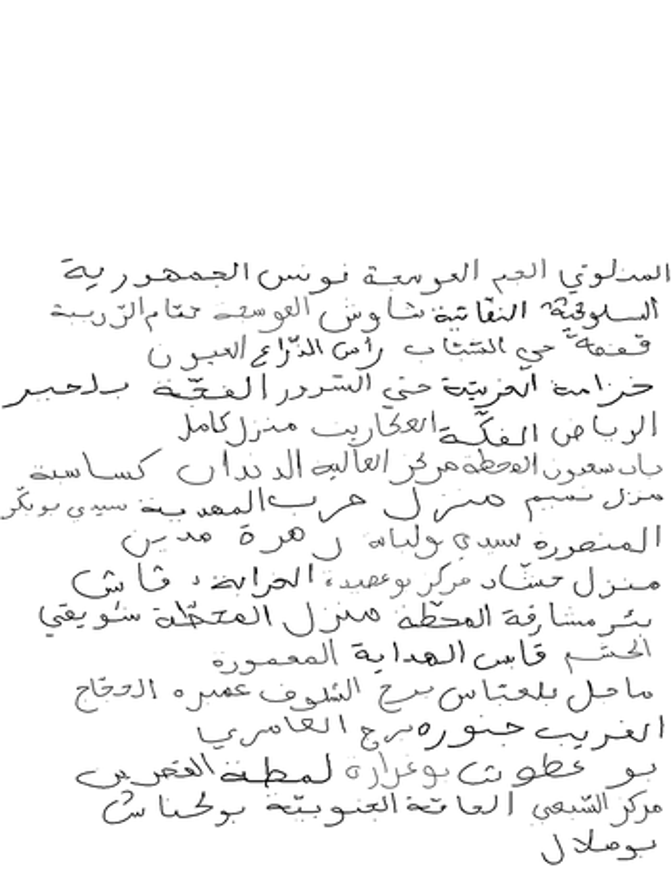 المتلوي الجم العوسجة تونس الجمهورية
السلوقية النقاتية شاوش العوسجة حمام الزريبة
قفصة حي الشباب رأس الذراع العيون
خزامة الحرية حي السرور القجة بلخير
الرياض الفكة العكاريت منزل كامل
باب سعدون المحطة مركز العالية الدندان كساسبة
منزل نسيم منزل حرب المهدية سيدي بوبكر
المنصورة سيدي بولبابة زهرة مدين
منزل حشاد مركز بوعصيدة الخزانة
بئر مشارقة المحطة منزل المحطة شويقي
الحشم قابس الهداية المعمورة
ماجل بلعباس برج الشلوف عميرة الحجاج
الغريب جنورة برج العامري
بو عطوش بوغرارة لمطة القصرين
مركز الشبعي العامة الجنوبية بولحناش
بوجلال